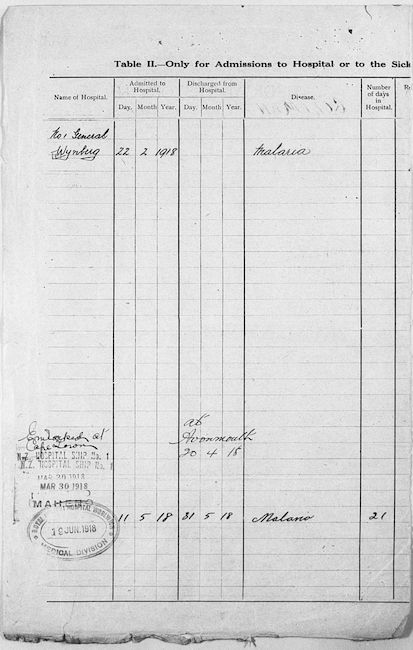 Table II.—Only for Admissions to Hospital or to the Sick
Name of Hospital.
Admitted to
Hospital.
Day. Month Year.
Discharged from
Hospital.
Day. Month Year.
Disease.
Number
of days
in
Hospital.
No 1 General
Wynberg 22 2 1918 Malaria
Embarked at
Cape Town
N.Z. HOSPITAL SHIP No. 1
N.Z. HOSPITAL SHIP No. 1
MAR 30 1918
MAR 30 1918
MAHENO
at
Avonmouth
20 4 18
11 5 18 31 5 18 Malaria 21
ROYAL HOSPITAL WOOLWICH
19 JUN. 1918
MEDICAL DIVISION